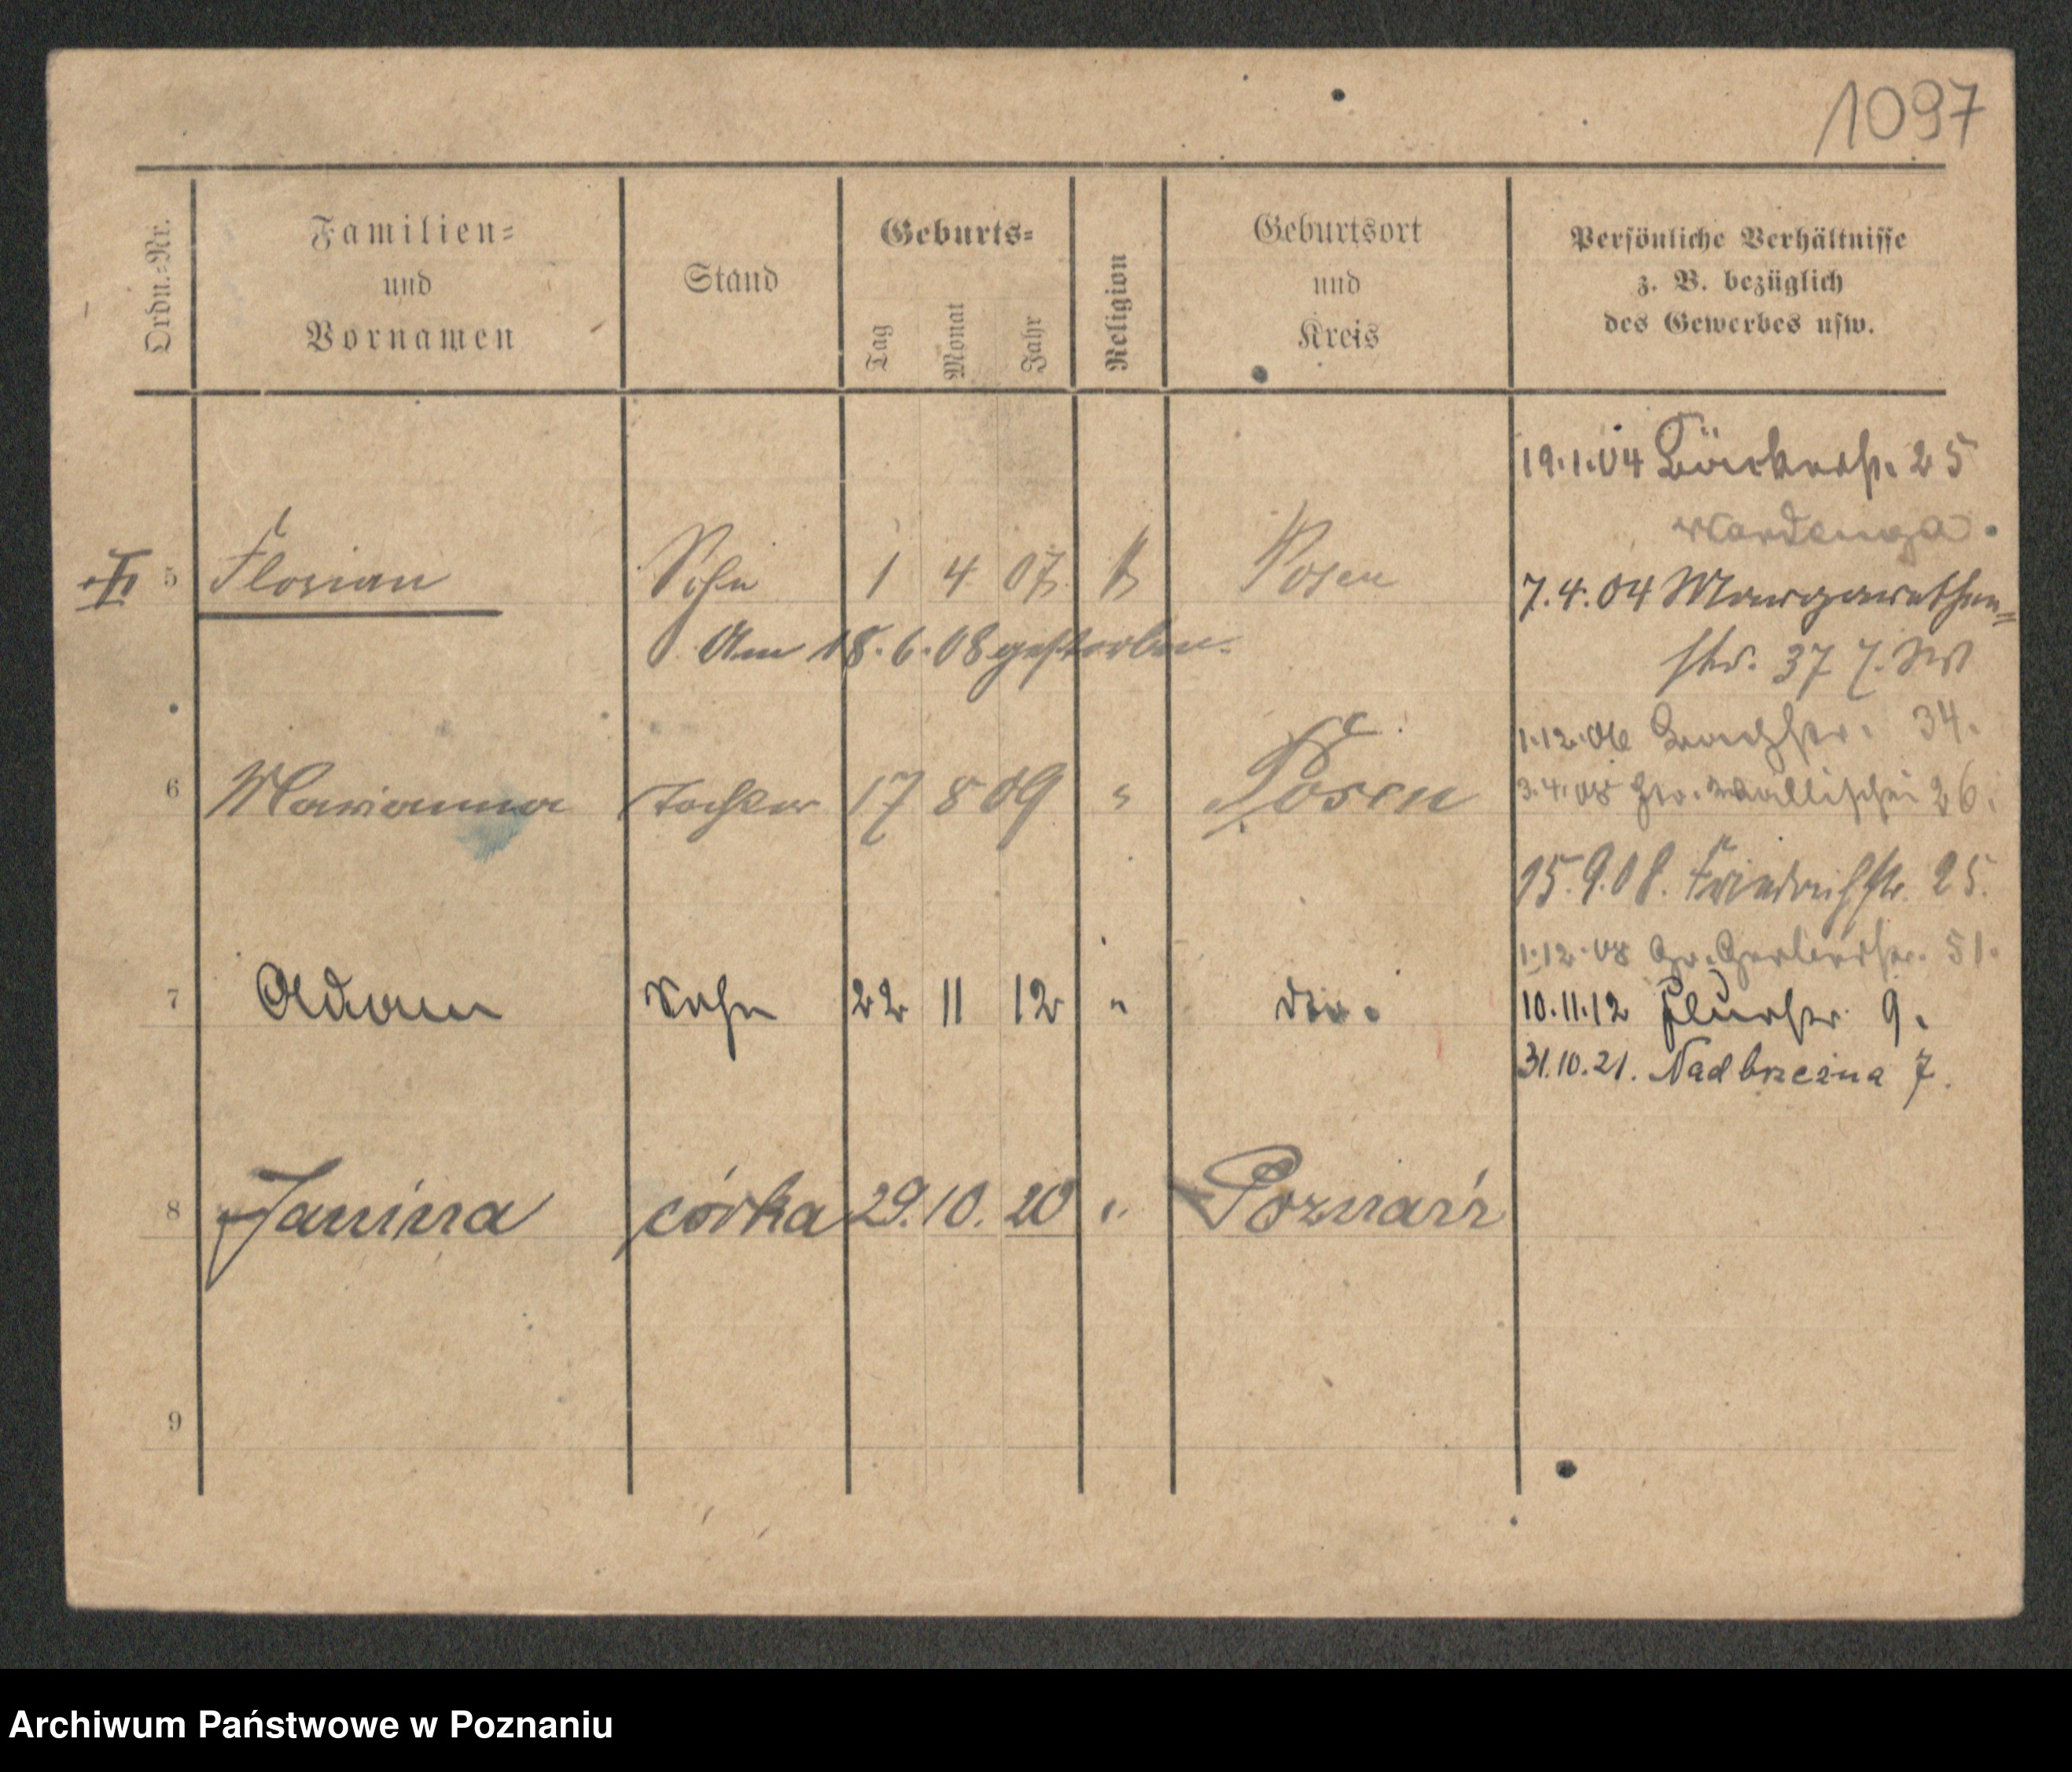 1097
Ordn.-Nr.
Familien-
und
Vornamen
Stand
Geburts-
Tag
Monat
Jahr
Religion
Geburtsort
und
Kreis
Persönliche Verhältnisse
z. B. bezüglich
des Gewerbes usw.
19.1.04 Bäckerstr. 25
Wardenga.
5 Florian Sohn 1 4 07 k Posen
Am 18.6.08 gestorben.
7.4.04 Margarethen-
str. 37
1.12.06 Bachstr. 34.
6 Marianna Tochter 17 8 09 " Posen
3.4.08 Gr. Wallischei 26.
15.9.08. Friedrichstr. 25.
1.12.08 Gr. Gerberstr. 51.
7 Adam Sohn 22 11 12 " do.
10.11.12 Flurstr. 9.
31.10.21. Nadbrzeżna 7.
8 Janina córka 29. 10. 20 " Poznań
9
Archiwum Państwowe w Poznaniu